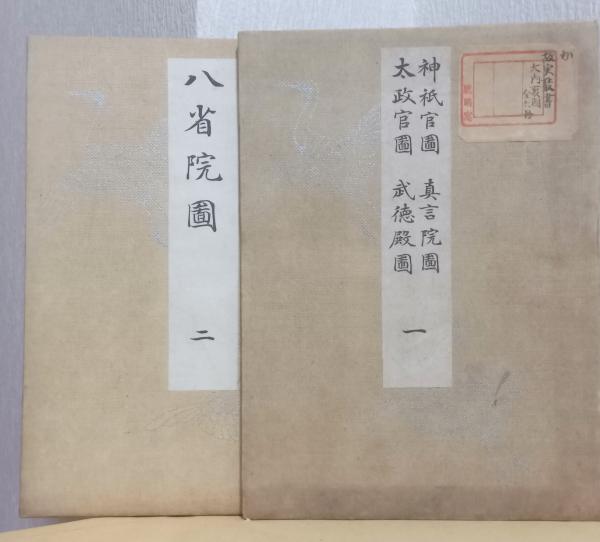 神祇官圖 真言院圖
太政官圖 武徳殿圖
一
八省院圖
二
故実叢書
大内裏圖